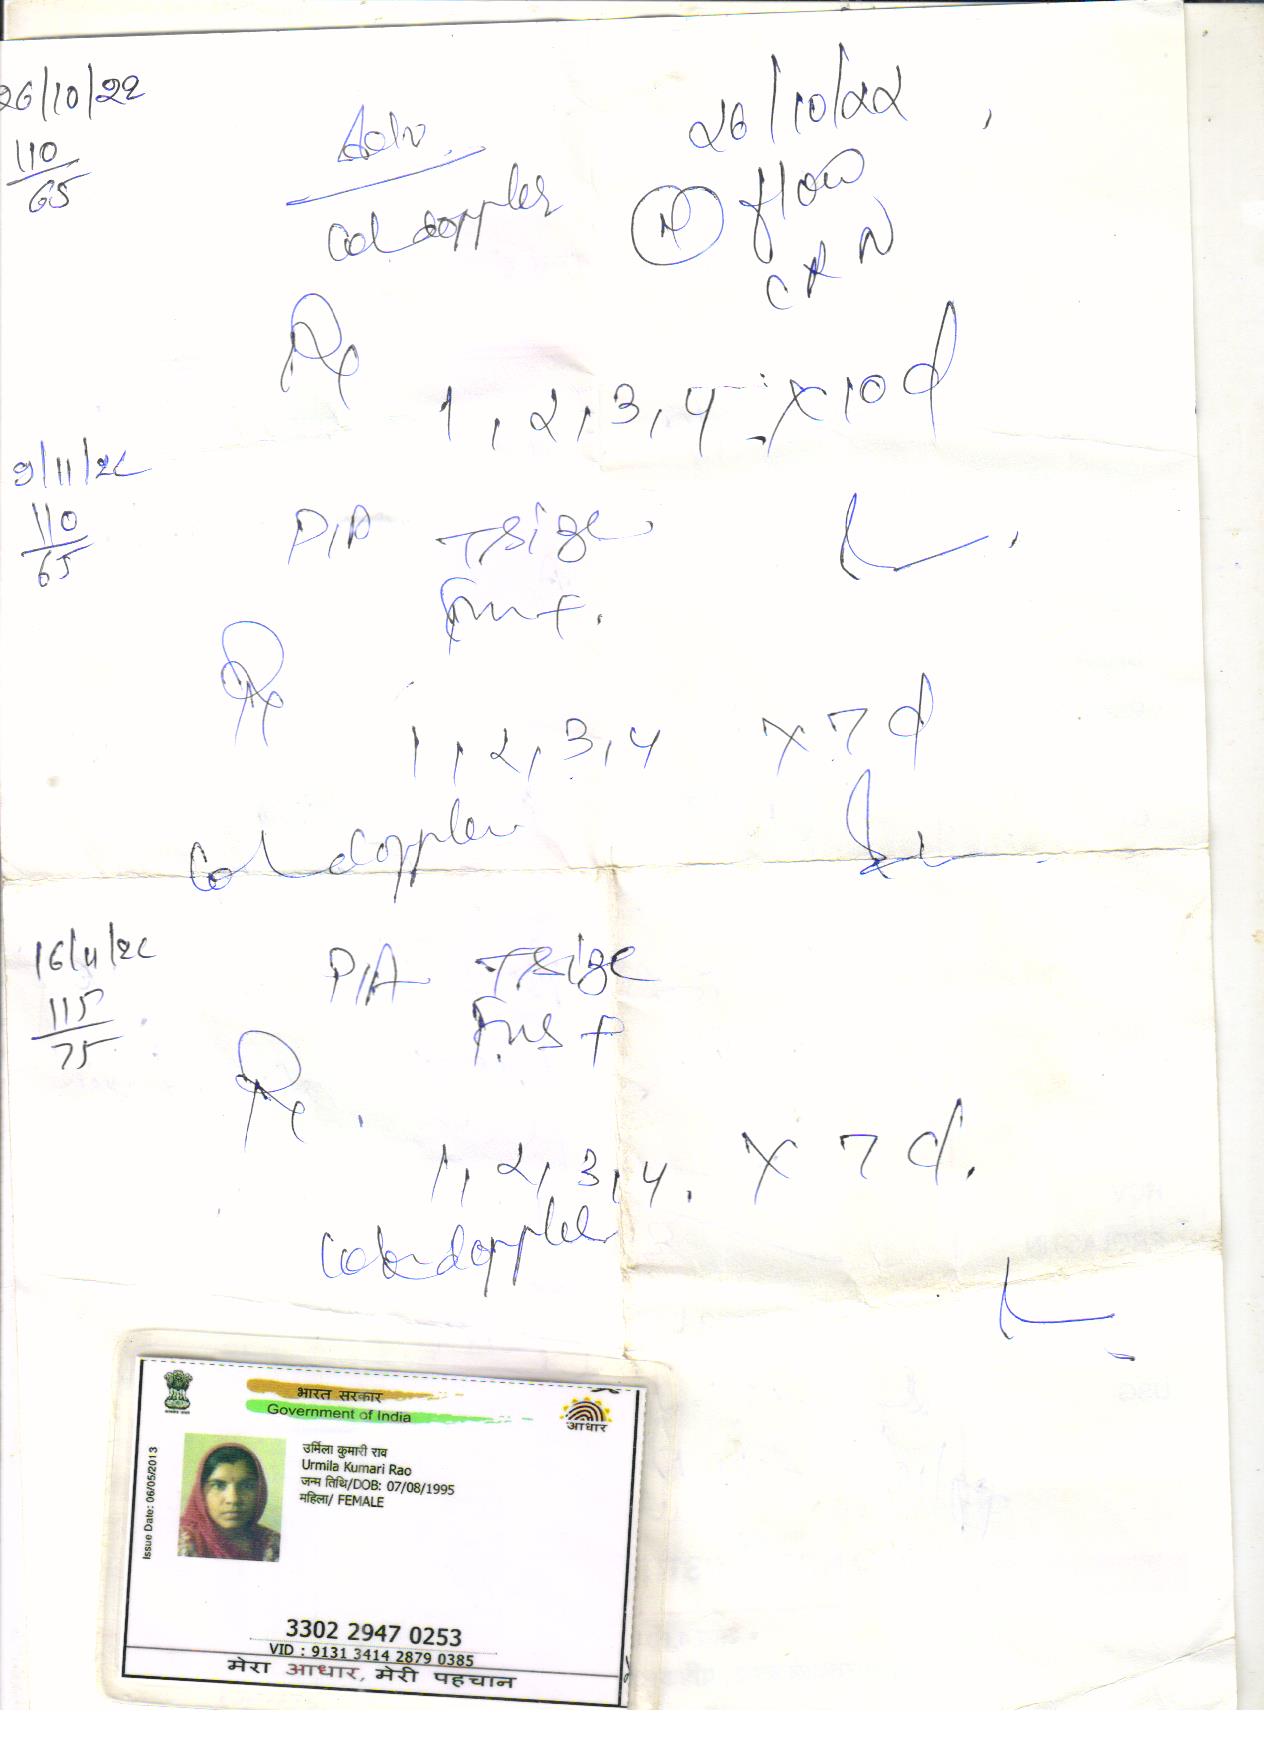 26/10/22
110
65
Adv.
Col doppler
26/10/22
N flow
Rx
1, 2, 3, 4 x 10 d
9/11/22
110
65
P/A Tsize
Rx
1, 2, 3, 4 x 7 d
Col doppler
16/11/22
115
75
P/A Tsize
FHS +
Rx
1, 2, 3, 4. x 7 d.
Color doppler
भारत सरकार
Government of India
आधार
Issue Date: 06/05/2013
उर्मिला कुमारी राव
Urmila Kumari Rao
जन्म तिथि/DOB: 07/08/1995
महिला/ FEMALE
3302 2947 0253
VID : 9131 3414 2879 0385
मेरा आधार, मेरी पहचान